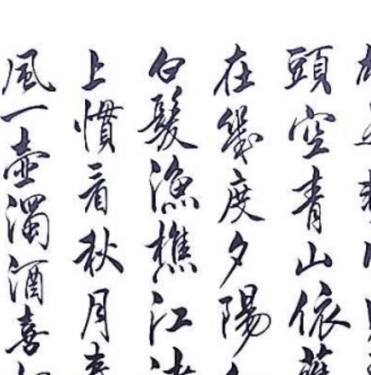 頭空青山依舊
在幾度夕陽
白髮漁樵江渚
上慣看秋月春
風一壺濁酒喜